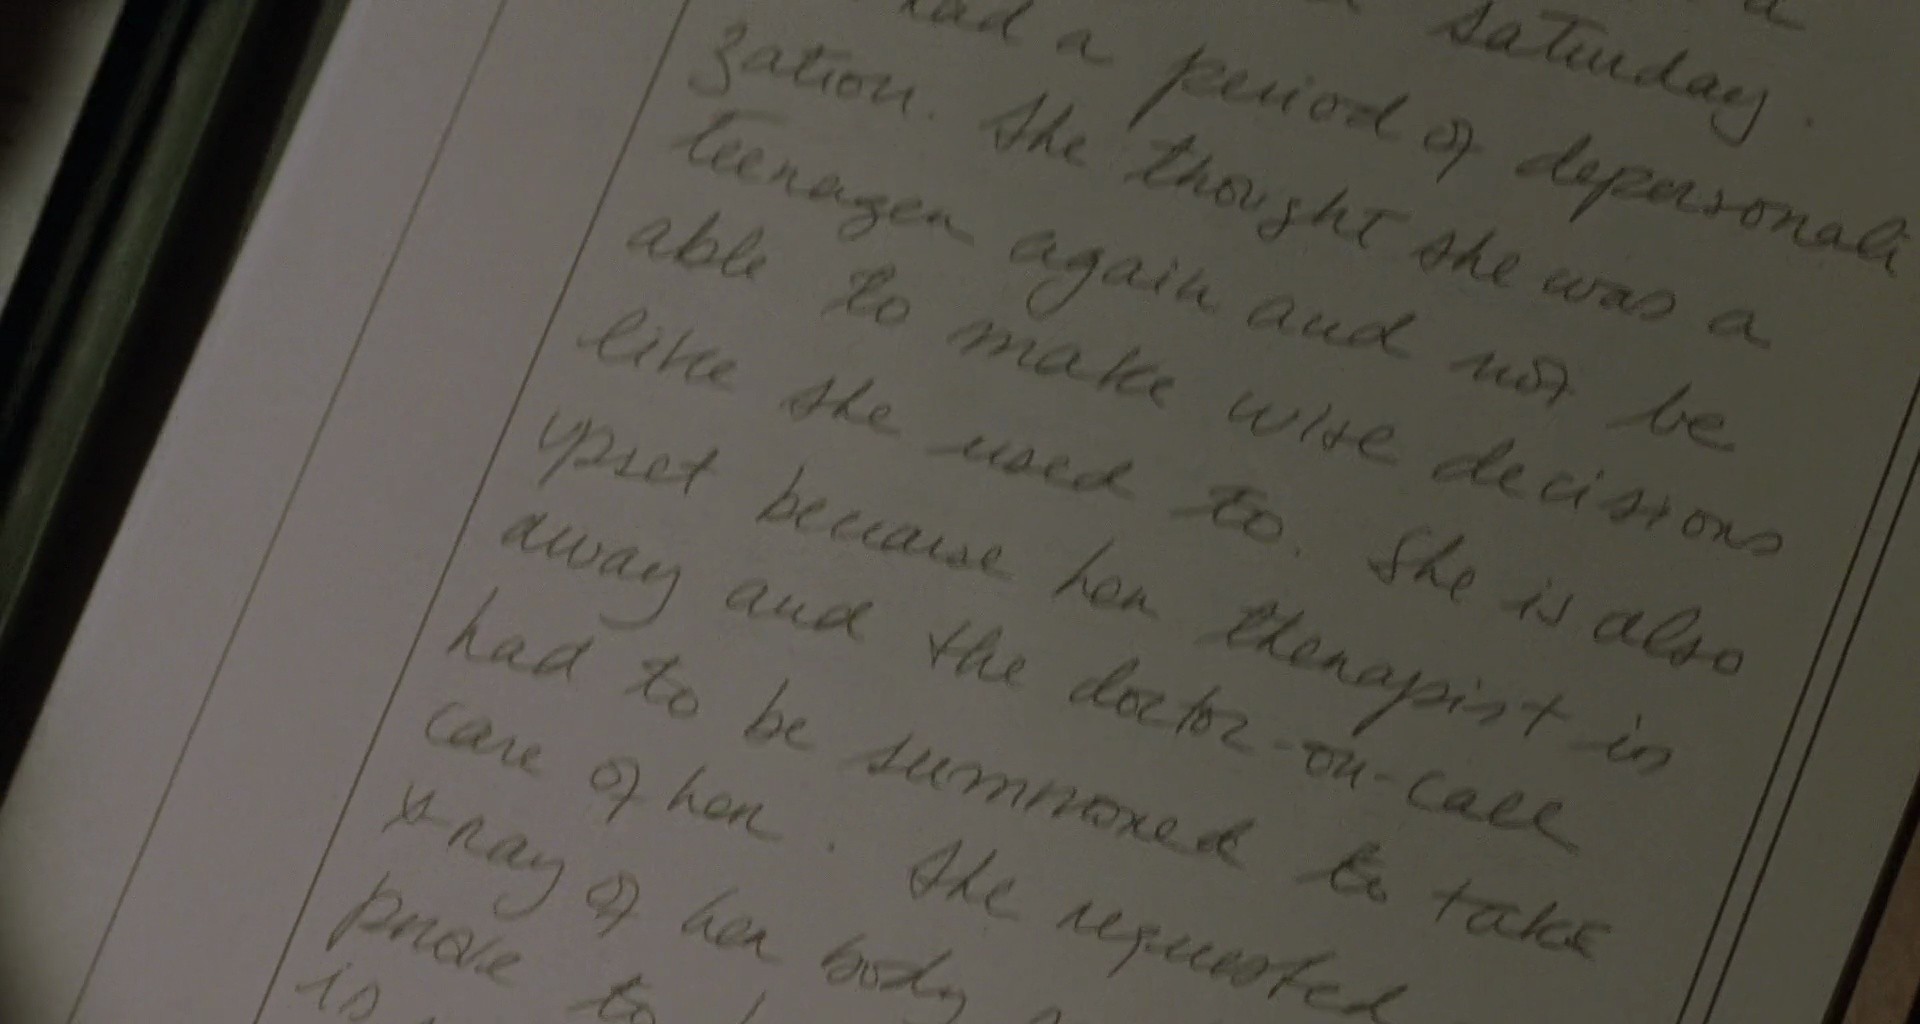 Saturday.
had a period of depersonali
zation. She thought she was a
teenager again and not be
able to make wise decisions
like she used to. She is also
upset because her therapist is
away and the doctor-on-call
had to be summoned to take
care of her. She requested
x-ray of her body
prove to
is